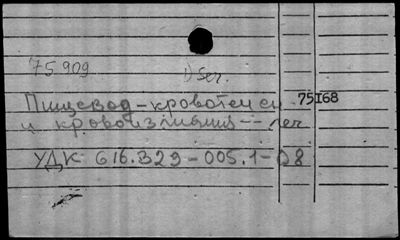 75909 1) Ser.
Пищевод - кровотечен 75168
и кровоизлияния -- леч
УДК 616.329-005.1-08